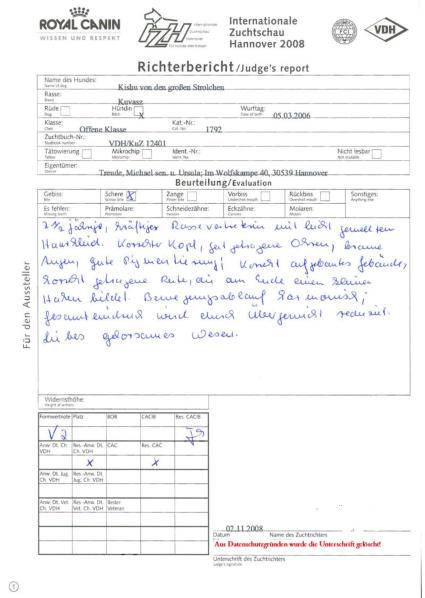 ROYAL CANIN
WISSEN UND RESPEKT
Internationale Zuchtschau Hannover
Für Hunde aller Rassen
Internationale
Zuchtschau
Hannover 2008
FCI
VDH
Richterbericht/Judge's report
Name des Hundes:
Name of dog
Kishu von den großen Strolchen
Rasse:
Breed
Kuvasz
Rüde
Dog
Hündin
Bitch
X
Wurftag:
Date of birth
05.03.2006
Klasse:
Class
Offene Klasse
Kat.-Nr.:
Cat. No.
1792
Zuchtbuch-Nr.:
Studbook number
VDH/KuZ 12401
Tätowierung
Tattoo
Mikrochip
Microchip
Ident.-Nr.:
Ident. No.
Nicht lesbar
Not readable
Eigentümer:
Owner
Treude, Michael sen. u. Ursula; Im Wolfskampe 40, 30539 Hannover
Beurteilung/Evaluation
Gebiss:
Bite
Schere X
Scissor bite
Zange
Pincer bite
Vorbiss
Undershot mouth
Rückbiss
Overshot mouth
Sonstiges:
Anything else
Es fehlen:
Missing teeth
Prämolare:
Premolars
Schneidezähne:
Incisors
Eckzähne:
Canines
Molaren:
Molars
2 ½ jährige, kräftige Rassevertreterin mit leicht gewelltem
Haarkleid. Korrekter Kopf, gut getragene Ohren, braune
Augen, gute Pigmentierung; korrekt aufgebautes Gebäude,
korrekt getragene Rute, die am Ende einen kleinen
Haken bildet. Bewegungsablauf harmonisch;
Gesamteindruck wird durch Übergewicht reduziert.
Liebes gehorsames Wesen.
Für den Aussteller
Widerristhöhe:
Height at withers
Formwertnote Platz BOB CACIB Res. CACIB
V 2
Anw. Dt. Ch. VDH Res.-Anw. Dt. Ch. VDH CAC Res. CAC
X X
Anw. Dt. Jug. Ch. VDH Res.-Anw. Dt. Jug. Ch. VDH
Anw. Dt. Vet. Ch. VDH Res.-Anw. Dt. Vet. Ch. VDH Bester Veteran
02.11.2008
Datum Name des Zuchtrichters
Aus Datenschutzgründen wurde die Unterschrift gelöscht!
Unterschrift des Zuchtrichters
Judge's signature
1